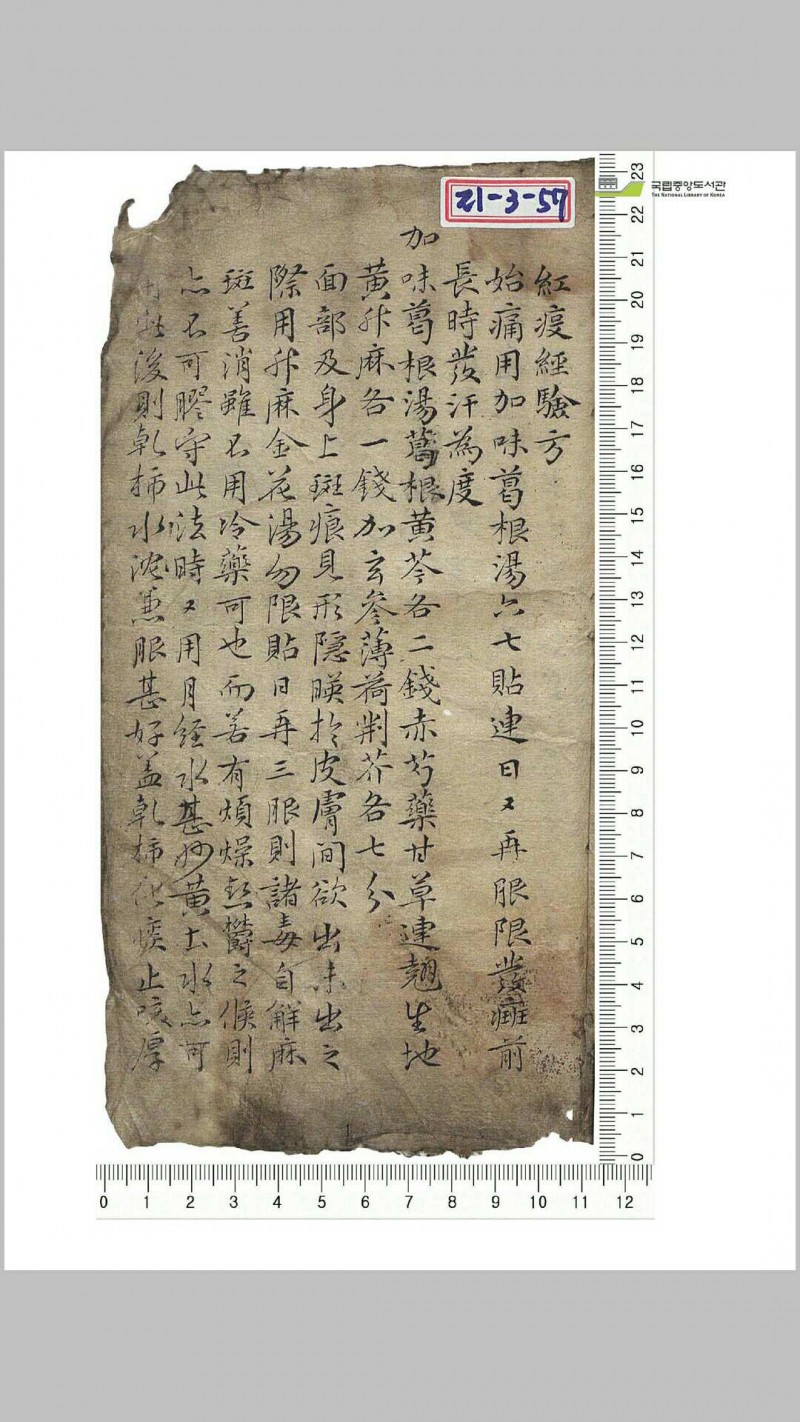 21-3-57
국립중앙도서관
THE NATIONAL LIBRARY OF KOREA
紅疫經驗方
始痛用加味葛根湯六七貼連日又再服限發斑前
長時發汗為度
加味葛根湯葛根黃芩各二錢赤芍藥甘草連翹生地
黃升麻各一錢加玄參薄荷荊芥各七分
面部及身上斑痕見形隱暎於皮膚間欲出未出之
際用升麻金花湯勿限貼日再三服則諸毒自解麻
斑善消雖不用冷藥可也而若有煩燥熱鬱之候則
亦不可膠守此法時又用月經水甚妙黃土水亦可
後則乾柿水沈兼服甚好盖乾柿化痰止咳厚
23
22
21
20
19
18
17
16
15
14
13
12
11
10
9
8
7
6
5
4
3
2
1
0
0 1 2 3 4 5 6 7 8 9 10 11 12